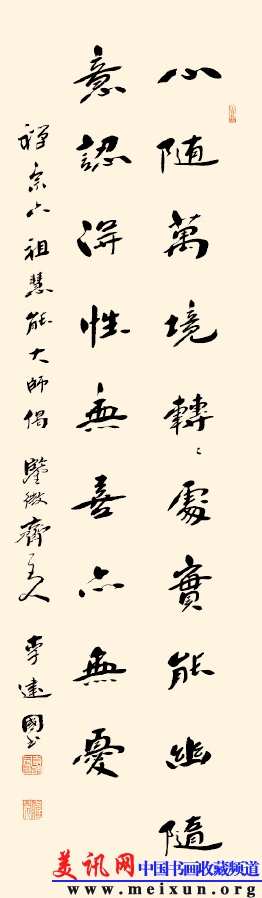 心随萬境轉〻處實能幽隨
意認得性無喜亦無憂
禅宗六祖慧能大師偈 鑒微齊主人 李建國书
美讯网 中国书画收藏频道
www.meixun.org